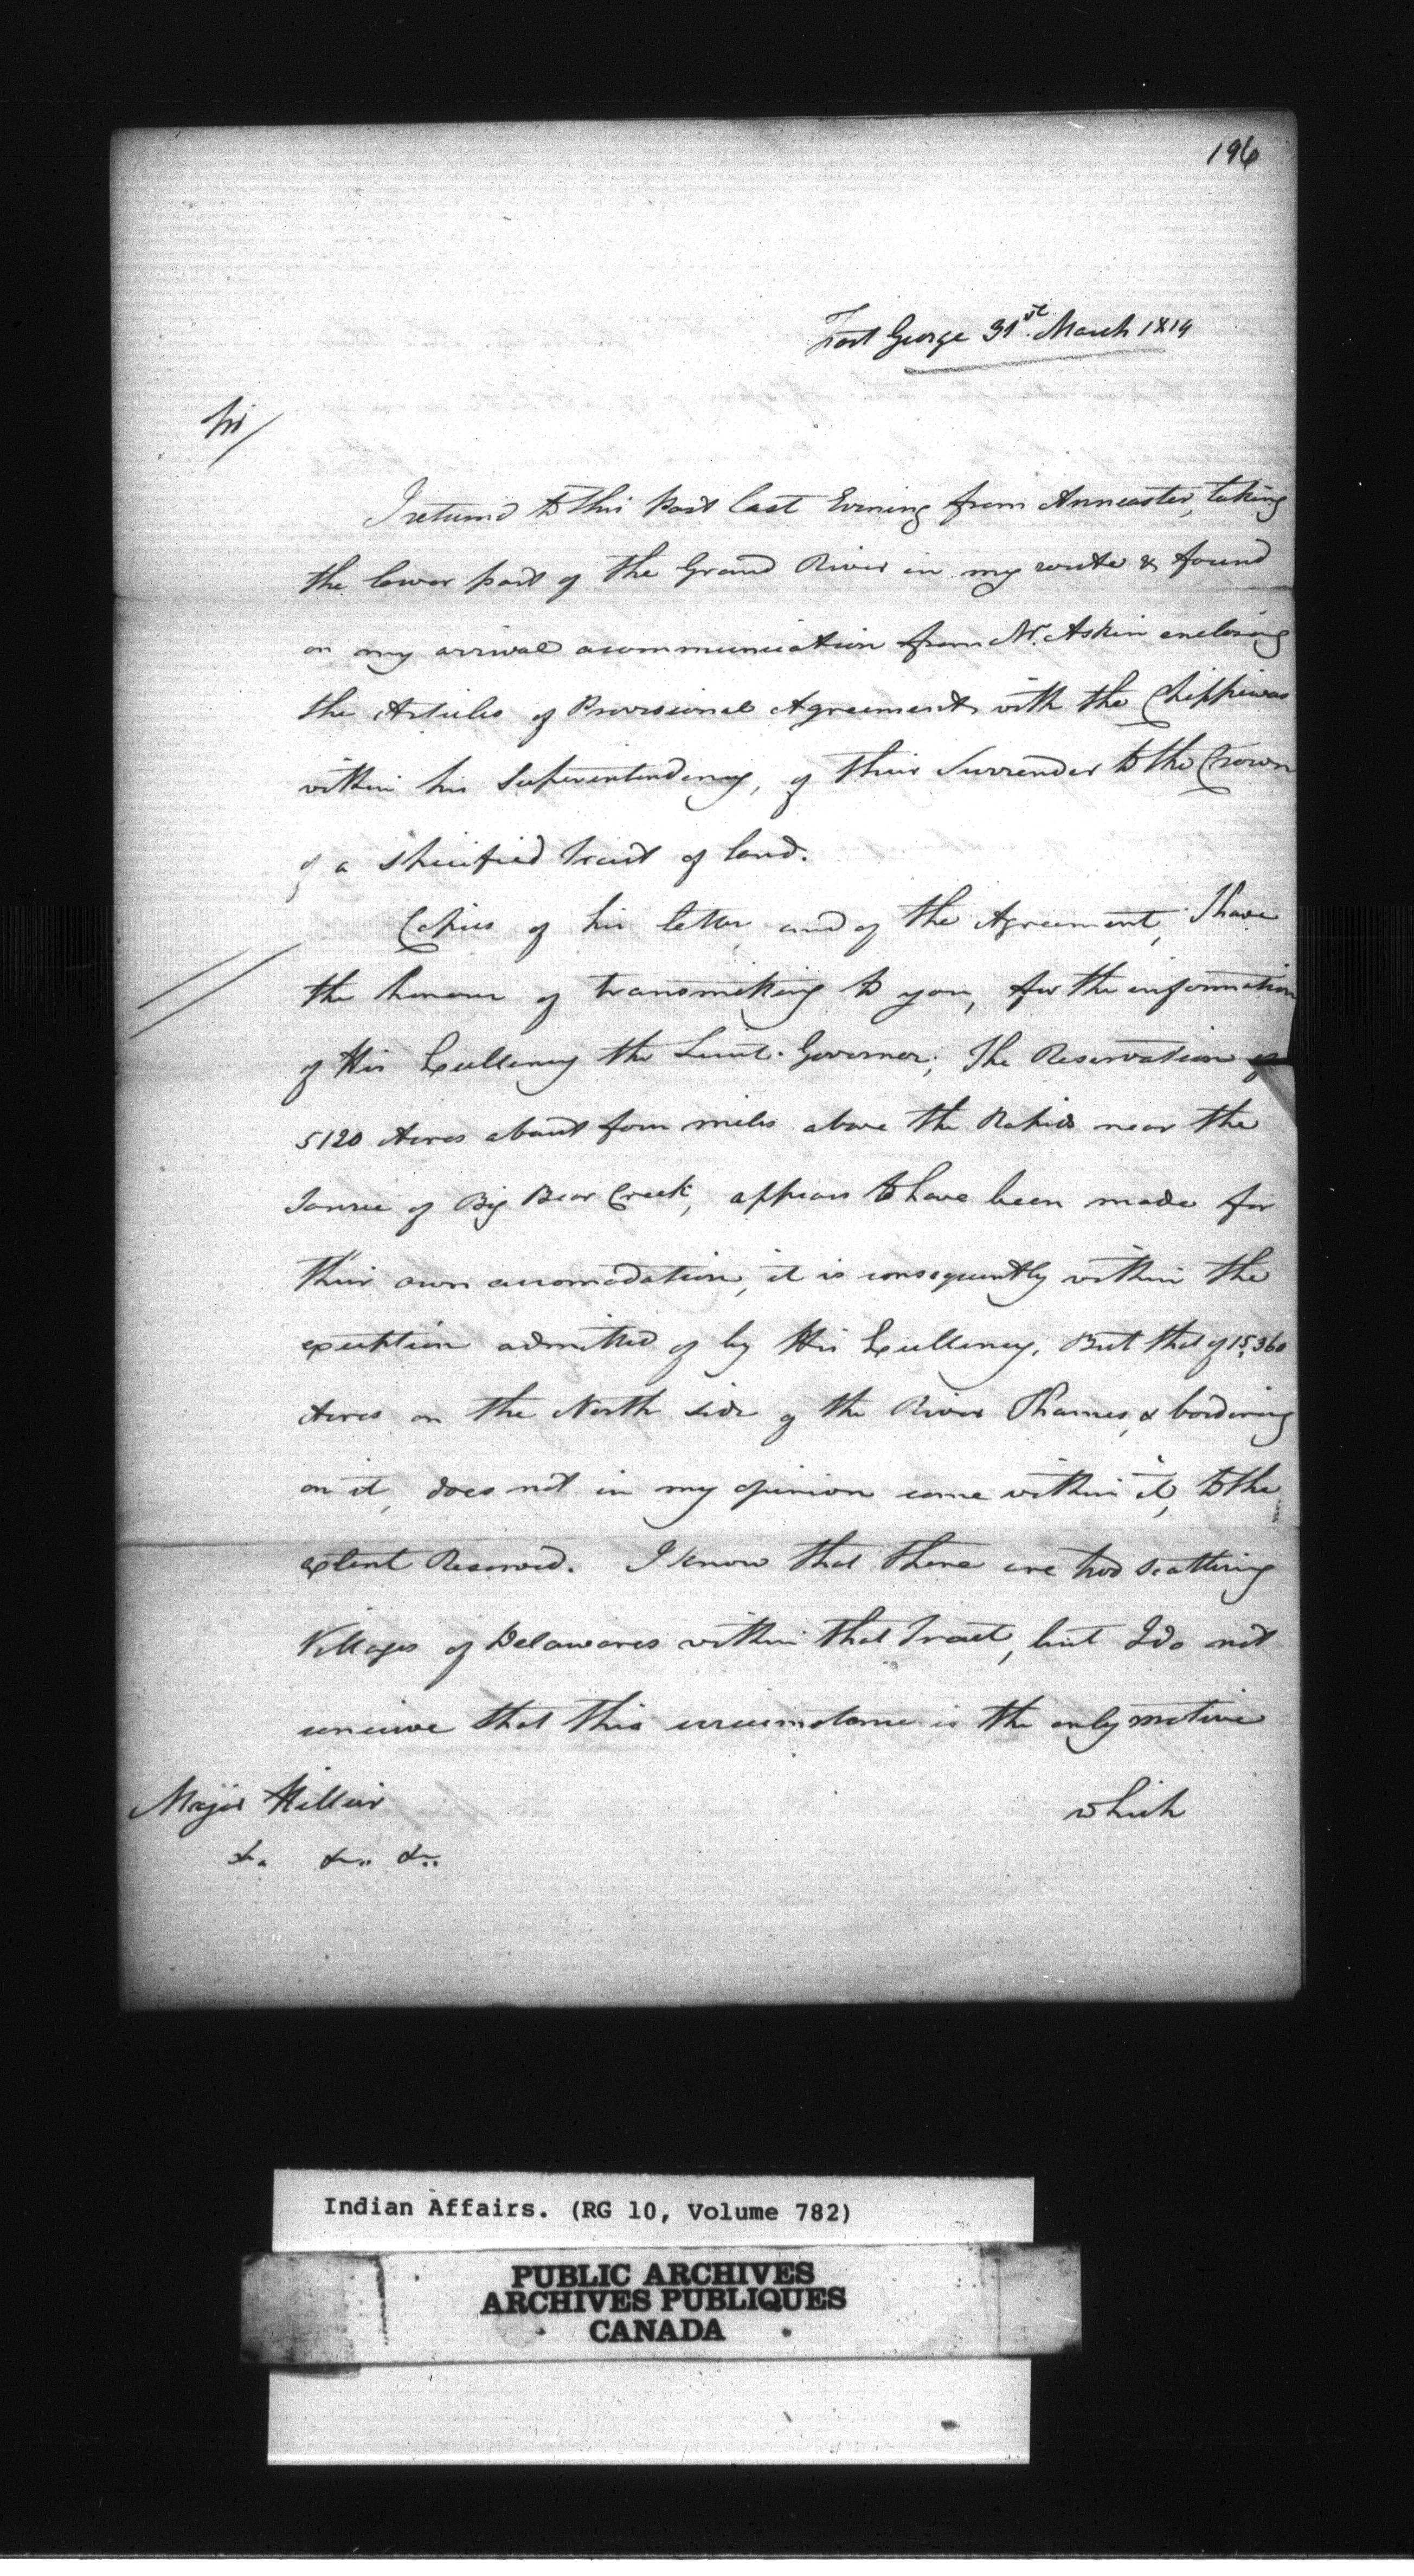 196
Fort George 31st March 1819
Sir/
I returnd to this Post last Evening from Anncaster, taking
the lower part of the Grand River in my route & found
on my arrival a communication from Mr. Askin enclosing
the Articles of Provisional Agreement with the Chippiwas
within his Superintendency, of their Surrender to the Crown
of a specified Tract of land.
Copies of his letter, and of the Agreement, I have
the honour of transmitting to you, for the information
of His Excellency the Lieut. Governor; The Reservation of
5120 Acres about four miles above the Rapids near the
Source of Big Bear Creek, appears to have been made for
their own accomodation, it is consequently within the
exception admitted of by His Excellency. But that of 15,360
Acres on the North side of the River Thames, & bordering
on it, does not in my opinion come within it, to the
extent Reserved. I know that there are two scattering
Villages of Delawares within that Tract, but I do not
conceive that this circumstance is the only motive
which
Major Hillier
&c. &c.. &c..
Indian Affairs. (RG 10, Volume 782)
PUBLIC ARCHIVES
ARCHIVES PUBLIQUES
CANADA